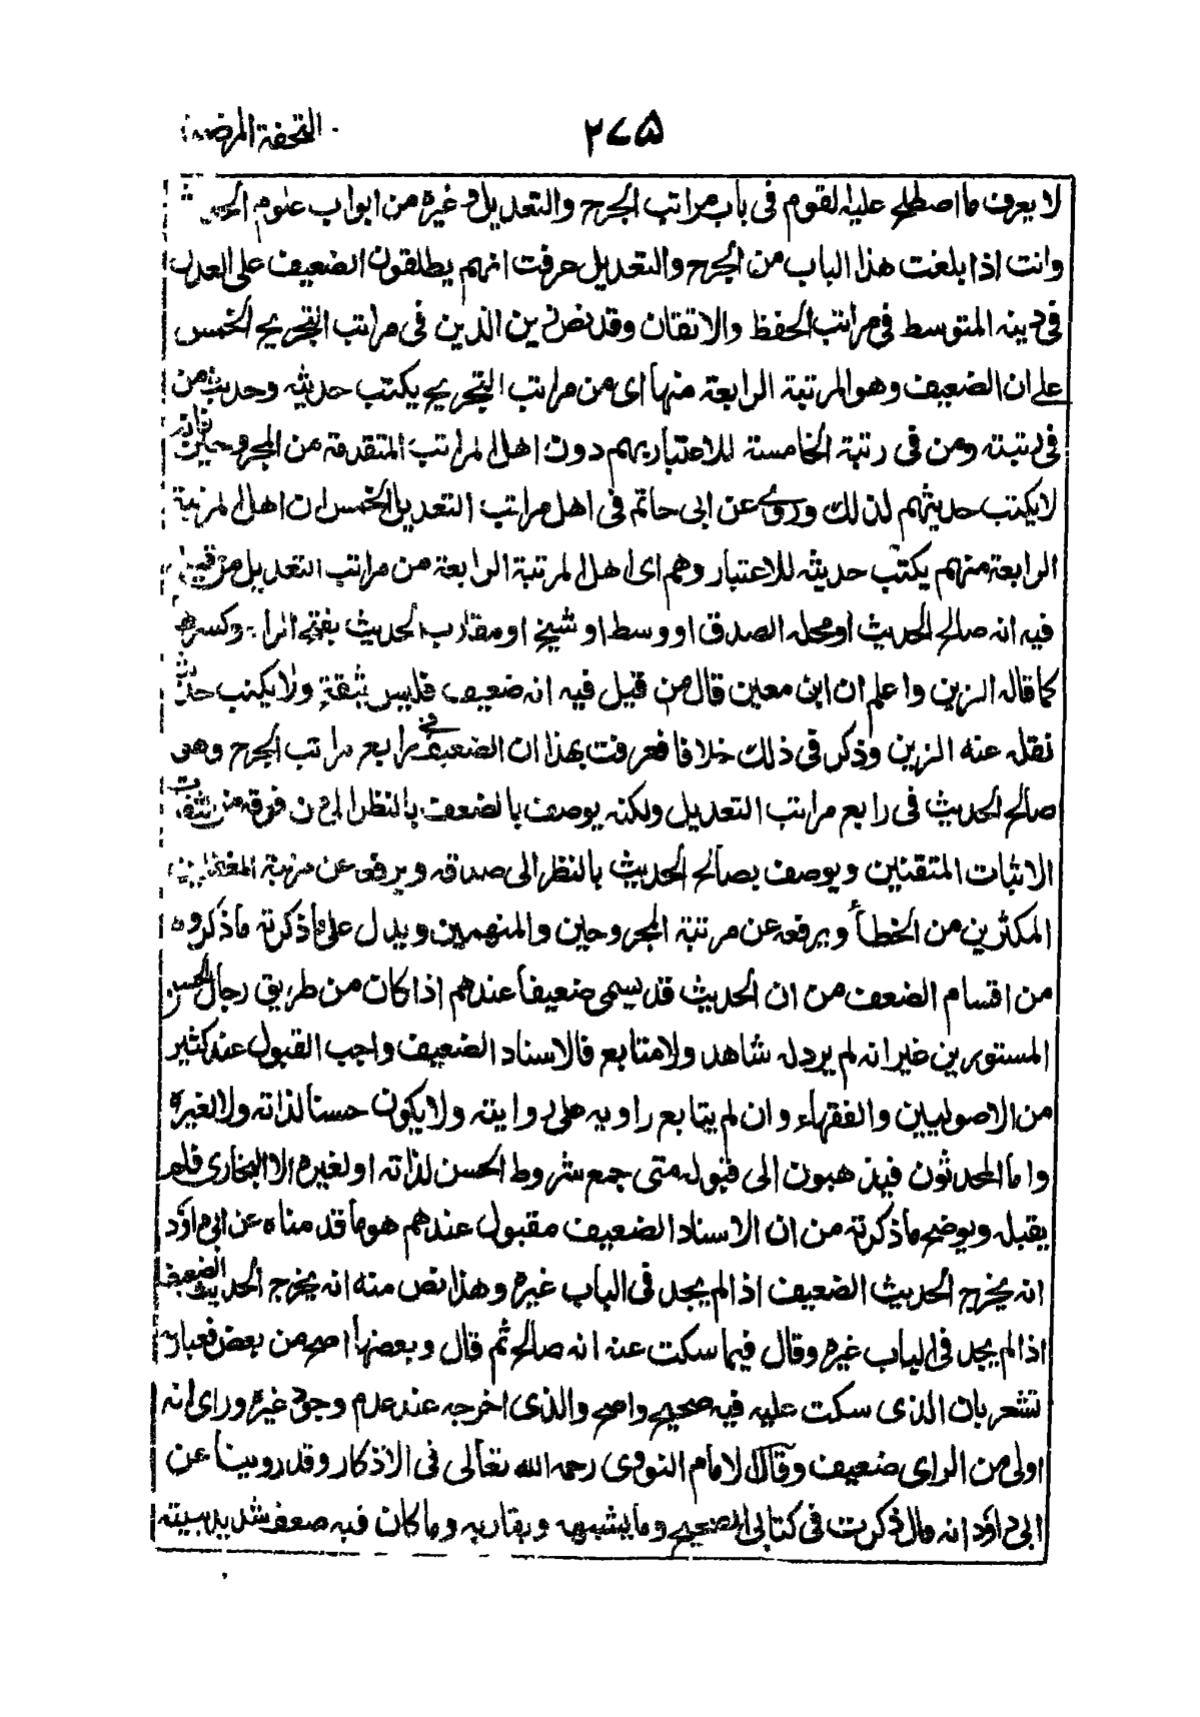 التحفة المرضية ٢٧٥
لا يعرف ما اصطلح عليه القوم فى باب مراتب الجرح والتعديل وغيره من ابواب علوم الحديث
وانت اذا بلغت هذا الباب من الجرح والتعديل عرفت انهم يطلقون الضعيف على العدل
فى دينه المتوسط فى مراتب الحفظ والاتقان وقد نص زين الدين فى مراتب التجريح الخمس
على ان الضعيف وهو المرتبة الرابعة منها اى من مراتب التجريح يكتب حديثه وحديث من
فى رتبته ومن فى رتبة الخامسة للاعتبار بهم دون اهل المراتب المتقدمة من المجروحين فانه
لا يكتب حديثهم لذلك وروى عن ابى حاتم فى اهل مراتب التعديل الخمس ان اهل المرتبة
الرابعة منهم يكتب حديثه للاعتبار وهم اى اهل المرتبة الرابعة من مراتب التعديل من قيل
فيه انه صالح الحديث او محله الصدق او وسط او شيخ او مقارب الحديث بفتح الراء وكسرها
كما قاله الزين واعلم ان ابن معين قال من قيل فيه انه ضعيف فليس بثقة ولا يكتب حديثه
نقله عنه الزين وذكر فى ذلك خلافا فعرفت بهذا ان الضعيف فى رابع مراتب الجرح وهو
صالح الحديث فى رابع مراتب التعديل ولكنه يوصف بالضعف بالنظر الى من فوقه من ثقات
الاثبات المتقنين ويوصف بصالح الحديث بالنظر الى صدقه ويرفعه عن مرتبة
المكثرين من الخطأ ويرفعه عن مرتبة المجروحين والمتهمين ويدل على ما ذكرته ما ذكروه
من اقسام الضعف من ان الحديث قد يسمى ضعيفا عندهم اذا كان من طريق رجال الحسن
المستورين غير انه لم يرد له شاهد ولا متابع فالاسناد الضعيف واجب القبول عند كثير
من الاصوليين والفقهاء وان لم يتابع راويه على روايته ولا يكون حسنا لذاته ولا لغيره
واما المحدثون فيذهبون الى قبوله متى جمع شروط الحسن لذاته او لغيره الا البخارى فلم
يقبله ويوضح ما ذكرته من ان الاسناد الضعيف مقبول عندهم هو ما قدمناه عن ابى داؤد
انه يخرج الحديث الضعيف اذا لم يجد فى الباب غيره وهذا نص منه انه يخرج الحديث الضعيف
اذا لم يجد فى الباب غيره وقال فيما سكت عنه انه صالح ثم قال وبعضها اصح من بعض فعبارته
تشعر بان الذى سكت عليه فيه صحيح واصح والذى اخرجه عند عدم وجود غيره وراى انه
اولى من الراى ضعيف وقال الامام النووى رحمه الله تعالى فى الاذكار وقد روينا عن
ابى داؤد انه قال ذكرت فى كتابى الصحيح وما يشبهه ويقاربه وما كان فيه ضعف شديد بينته